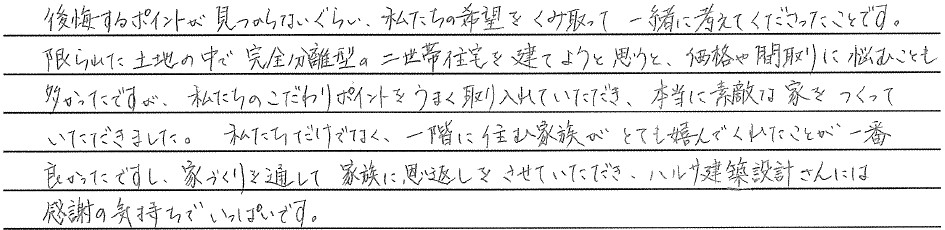 後悔するポイントが見つからないぐらい、私たちの希望をくみ取って一緒に考えてくださったことです。
限られた土地の中で完全分離型の二世帯住宅を建てようと思うと、価格や間取りに悩むことも
多かったですが、私たちのこだわりポイントをうまく取り入れていただき、本当に素敵な家をつくって
いただきました。私たちだけでなく、一階に住む家族がとても嬉んでくれたことが一番
良かったですし、家づくりを通して家族に恩返しをさせていただき、ハルサ建築設計さんには
感謝の気持ちでいっぱいです。